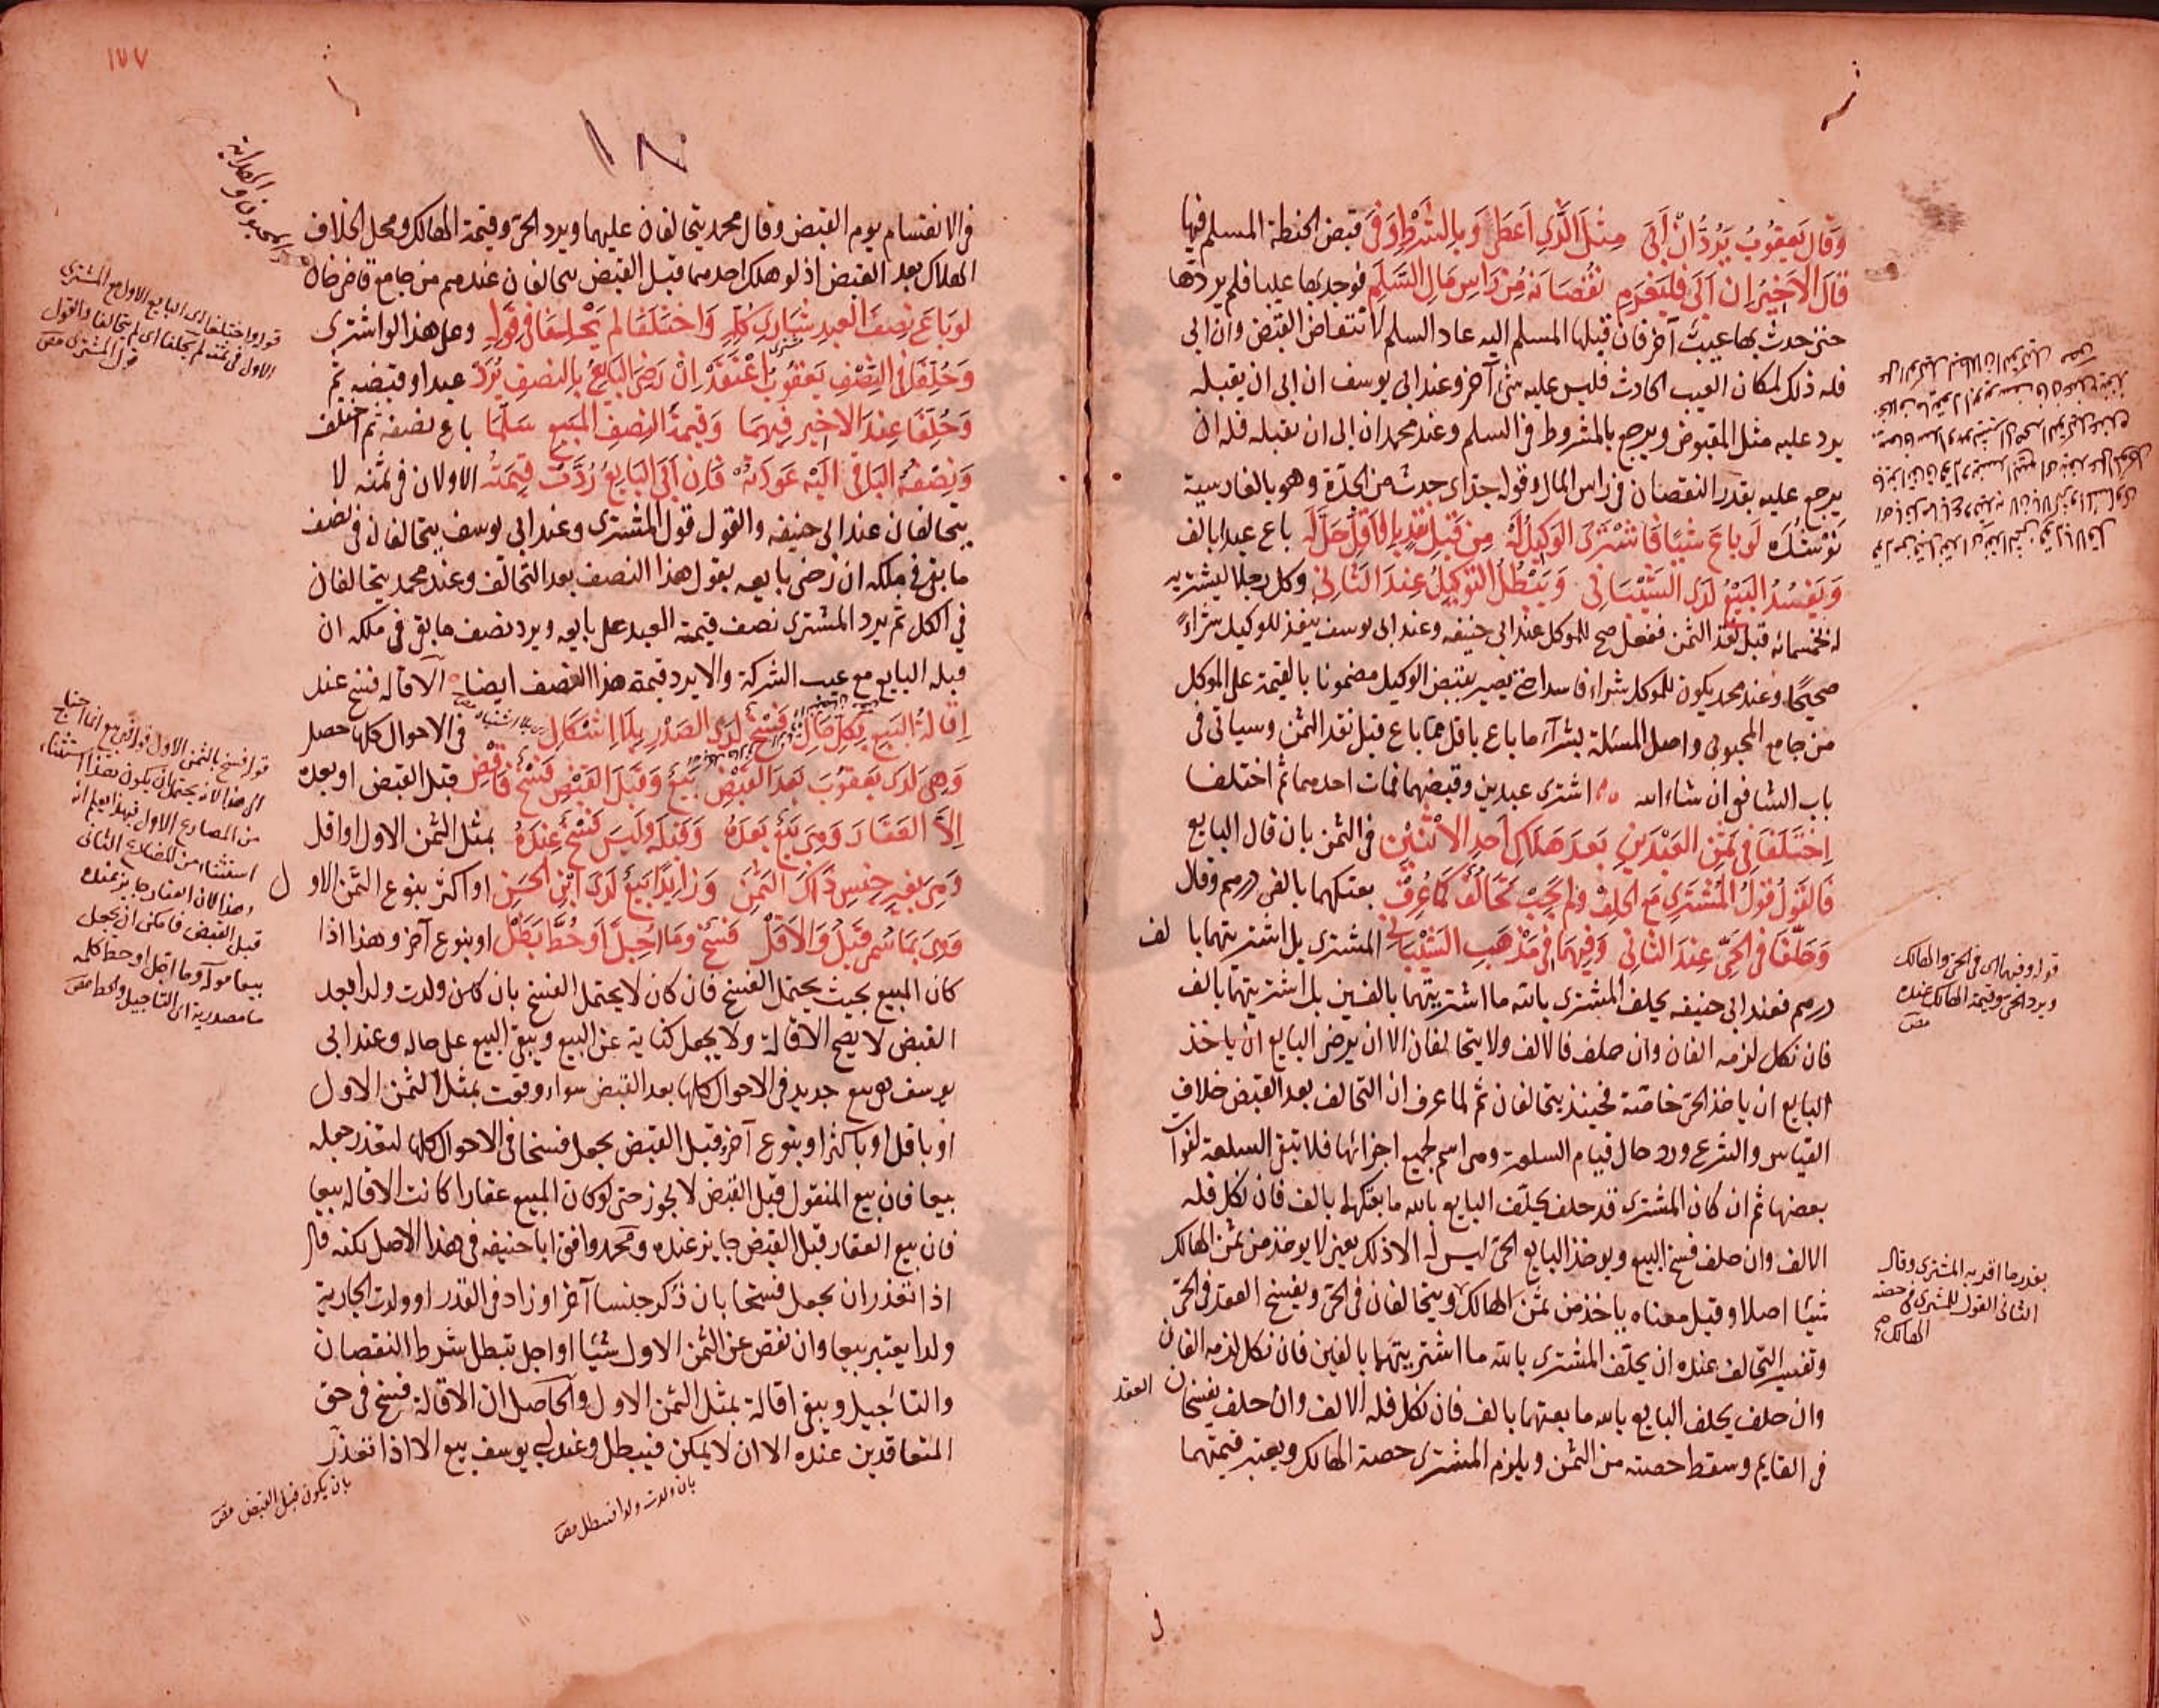 وَقَالَ يَعقُوبُ يَرُدُّ اِنْ اَبَى مِثلَ الَّذِي اَعطَى وَبِالشَّرْطِ وَفَى قبض الحنطة المسلم فيها
قَالَ الاَخِيرُ اِن اَبَى فَليَغرَمِ نُقصَانَهُ مِن رَاسِ مَالِ السَّلَمِ فوجد بها عيبا فلم يردها
حتى حدث بها عيب آخر فان قبلها المسلم اليه عاد السلم لانتقاض القبض وان ابى
فله ذلك لمكان العيب الحادث فليس عليه شئ آخر وعند ابى يوسف ان ابى ان يقبله
يرد عليه مثل المقبوض ويرجع بالمشروط فى السلم وعند محمد ان ابى ان يقبله فله ان
يرجع عليه بقدر النقصان فى راس المال وقوله جدا اى حدث من الجدة وهو بالفارسية
نوشده لَو بَاعَ شَيئًا فَاشتَرَى الوَكِيلُ لَهُ مِن قَبلِ نَقدٍ بِاَقَلَّ حَلَّ لَهُ باع عبدا بالف
وَيَفسُدُ البَيعُ لَدَى الشَّيبَانِي وَيَبطُلُ التَّوكِيلُ عِندَ الثَّانِي وكل رجلا ليشتريه
له بخمسمائه قبل نقد الثمن ففعل صح للموكل عند ابى حنيفه وعند ابى يوسف ينفذ للوكيل شراءً
صحيحًا وعند محمد يكون للموكل شراء فاسدا حتى يصير بقبض الوكيل مضمونا بالقيمة على الموكل
من جامع المحبوبى واصل المسئلة بشراء ما باع باقل مما باع قبل نقد الثمن وسياتى فى
باب الشافعى ان شاء الله اشترى عبدين وقبضهما فمات احدهما ثم اختلفا
اِختَلَفَا فِي ثَمَنِ العَبدَينِ بَعدَ هَلَاكِ اَحَدِ الاثنَينِ فى الثمن بان قال البايع
فَالقَولُ قَولُ المُشتَرِي مَعَ الحَلِف وَلَم يَجِب تَحَالُفٌ كَمَا عُرِف بعتكهما بالفى درهم وقال
وَحَلَّفَا فِي الحَيِّ عِندَ الثَّانِي وَفِيهِمَا فِي مَذهَبِ الشَّيبَانِي المشترى بل اشتريتهما بالف
درهم فعند ابى حنيفه يحلف المشترى بالله ما اشتريتهما بالفين بل اشتريتهما بالف
فان نكل لزمه الفان وان حلف فالالف ولا يتحالفان الا ان يرضى البايع ان ياخذ
البايع ان ياخذ الحى خاصة فحينئذ يتحالفان ثم لما عرف ان التحالف بعد القبض خلاف
القياس والشرع ورد حال قيام السلعة وهى اسم لجميع اجزائها فلا تبقى السلعة لفوات
بعضها ثم ان كان المشترى قد حلف يحلّف البايع بالله ما بعتكهما بالف فان نكل فله
الالف وان حلف فسخ البيع وبوخذ البايع الحى ليس له الا ذلك يعنى لا يوخذ من ثمن الهالك
شيئا اصلا وقيل معناه ياخذ من ثمن الهالك ويتحالفان فى الحى ويفسخ العقد فى الحى
وتفسير التحالف عنده ان يحلّف المشترى بالله ما اشتريتهما بالفين فان نكل لزمه الفان
وان حلف يحلف البايع بالله ما بعتهما بالف فان نكل فله الالف وان حلف يفسخان العقد
فى القايم وسقط حصته من الثمن ويلزم المشترى حصة الهالك ويعتبر قيمتهما
قوله وفيهما اى فى الحى والهالك
ويرد الحى وقيمة الهالك عنده
بقدر ما اقر به المشترى وقال
الثانى القول للمشترى فى حصة
الهالك
١٧٧
١٨
فى الانقسام يوم القبض وقال محمد يتحالفان عليهما ويرد الحى وقيمة الهالك ومحل الخلاف
الهلاك بعد القبض اذ لو هلك احدهما قبل القبض يتحالفان عندهم من جامع قاضى خان
لَو بَاعَ نِصفَ العَبدِ شَارِي كُلِّهِ وَاختَلَفَا لَم يَحلِفَا فِي قَولِهِ وعلى هذا لو اشترى
وَحُلِّفَا فِي النِّصفِ يَعقُوبُ اعتَقَدْ اِنْ رَضِيَ البَايِعُ بِالنِّصفِ يُرَدّ عبدا وقبضه ثم
وَحُلِّفَا عِندَ الاَخِيرِ فِيهِمَا وَقِيمَةُ النِّصفِ المَبِيعِ سَلَّمَا باع نصفه ثم اختلف
وَنِصفُهُ البَاقِي اِلَيهِ عَودَتُهُ فَاِن اَبَى البَايِعُ رُدَّت قِيمَتُه الاولان فى ثمنه لا
يتحالفان عند ابى حنيفه والقول قول المشترى وعند ابى يوسف يتحالفان فى نصف
ما بقى فى ملكه ان رضى بايعه بقول هذا النصف بعد التحالف وعند محمد يتحالفان
فى الكل ثم يرد المشترى نصف قيمة العبد على بايعه ويرد نصف ما بقى فى ملكه ان
قبله البايع مع عيب الشركة والا يرد قيمة هذا النصف ايضا الاقاله فسخ عند
اِقَالَةُ البَيعِ بِكُلِّ حَالِ فَسخٌ لَدَى الصَّدرِ بِلَا اِشكَالِ فى الاحوال كلها حصل
وَهِيَ لَدَى يَعقُوبَ بَعدَ القَبضِ بَيعٌ وَقَبلَ القَبضِ فَسخٌ فَاقضِ قبل القبض او بعده
اِلَّا العَقَارَ وَهيَ بَيعٌ بَعدَهُ وَقَبلَهُ وَلَيسَ فَسخٌ عِندَهُ بمثل الثمن الاول او اقل
وَهيَ بِغَيرِ جِنسِ ذَاكَ الثَّمَنِ وَزَايِدًا بَيعٌ لَدَى ابنِ الحَسَنِ او اكثر بنوع الثمن الاول
وَهيَ بِمَا سُمِّيَ قَبلُ وَالاَقَلّ فَسخٌ وَمَا اُجِّلَ اَو حُطَّ بَطَل او بنوع آخر وهذا اذا
كان المبيع بحيث يحتمل الفسخ فان كان لا يحتمل الفسخ بان كان ولدت ولدا بعد
القبض لا يصح الاقالة ولا يجعل كناية عن البيع ويبقى البيع على حاله وعند ابى
يوسف هى بيع جديد فى الاحوال كلها بعد القبض سواء وقعت بمثل الثمن الاول
او باقل او باكثر او بنوع آخر وقبل القبض يجعل فسخا فى الاحوال كلها لتعذر جعله
بيعا فان بيع المنقول قبل القبض لا يجوز حتى لو كان المبيع عقارا كانت الاقاله بيعا
فان بيع العقار قبل القبض جايز عنده ومحمد وافق ابا حنيفه فى هذا الاصل لكنه قال
اذا تعذر ان يجعل فسخا بان ذكر جنسا آخر او زاد فى القدر او ولدت الجارية
ولدا يعتبر بيعا وان نقص عن الثمن الاول شيئا او اجل تبطل شرط النقصان
والتاجيل ويبقى اقالة بمثل الثمن الاول والحاصل ان الاقالة فسخ فى حق
المتعاقدين عنده الا ان لا يمكن فيبطل وعند ابى يوسف بيع الا اذا تعذر
بان ولدت ولدا فيبطل
بان يكون قبل القبض
قوله واختلفا اى البايع الاول مع المشترى
الاول فى ثمنه لم يحلفا اى لم يتحالفا والقول
قول المشترى
استثناء من المصراع الثانى
وهذا لان العقار جايز عنده
قبل القبض فامكن ان يجعل